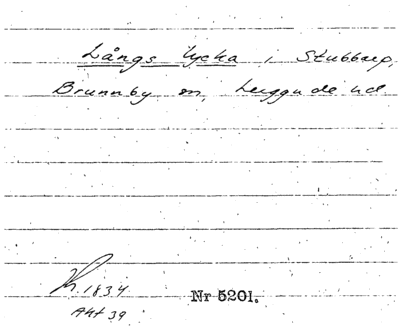 Långs lycka i Stubbarp,
Brunnby sn, Luggude hd
1834
Akt 39
Nr 5201.